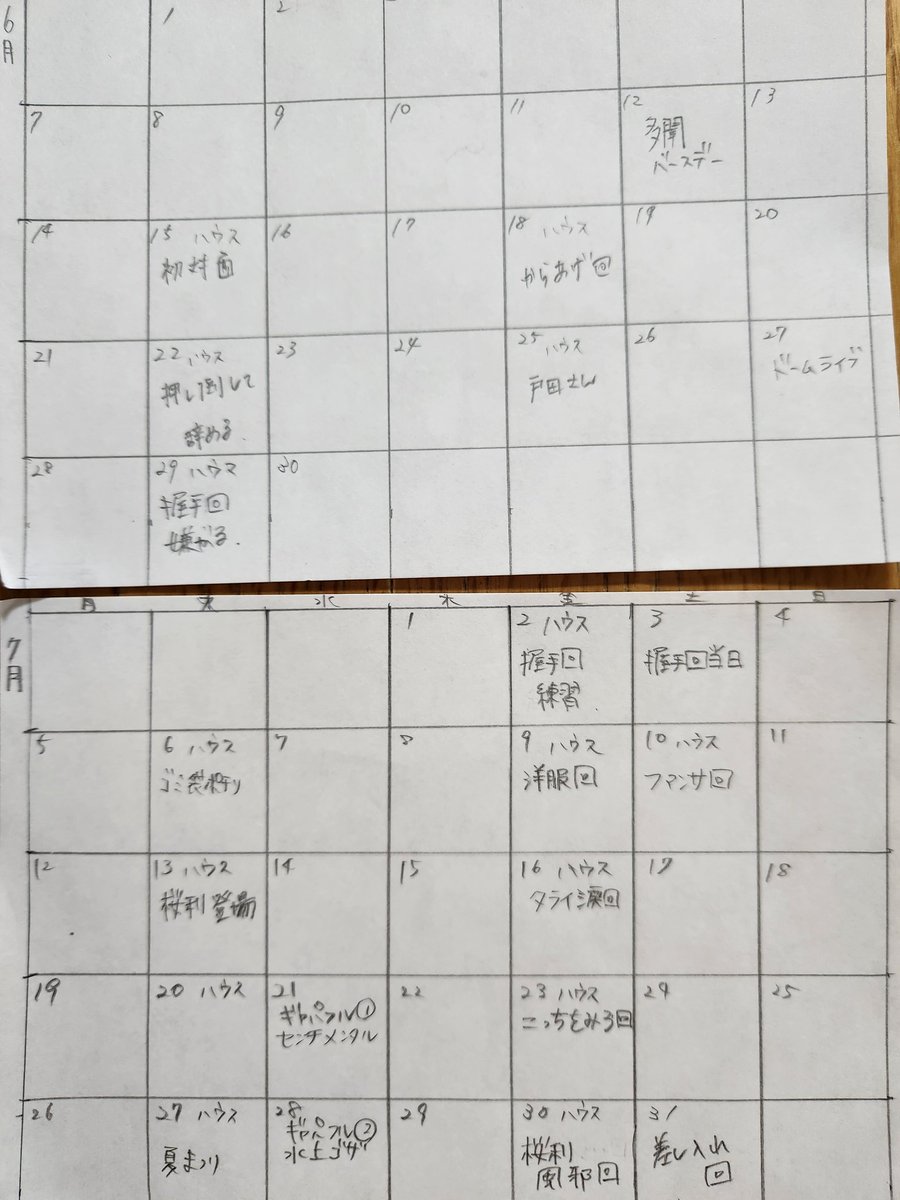 6月
1
2
7
8
9
10
11
12
多聞
バースデー
13
14
15 ハウス
初対面
16
17
18 ハウス
からあげ回
19
20
21
22 ハウス
押し倒して
辞める.
23
24
25 ハウス
戸田さん
26
27
ドームライブ
28
29 ハウス
握手回
嫌がる.
30
7月
月 火 水 木 金 土 日
1
2 ハウス
握手回
練習.
3
握手回当日
4
5
6 ハウス
ゴミ袋ポチリ
7
8
9 ハウス
洋服回
10 ハウス
ファンサ回
11
12
13 ハウス
桜利登場
14
15
16 ハウス
タライ涙回
17
18
19
20 ハウス
21
ギャパフル①
センチメンタル
22
23 ハウス
こっちをみろ回
24
25
26
27 ハウス
夏まつり
28
ギャパフル②
水上ゴザ
29
30 ハウス
桜利
風邪回
31
差し入れ
回